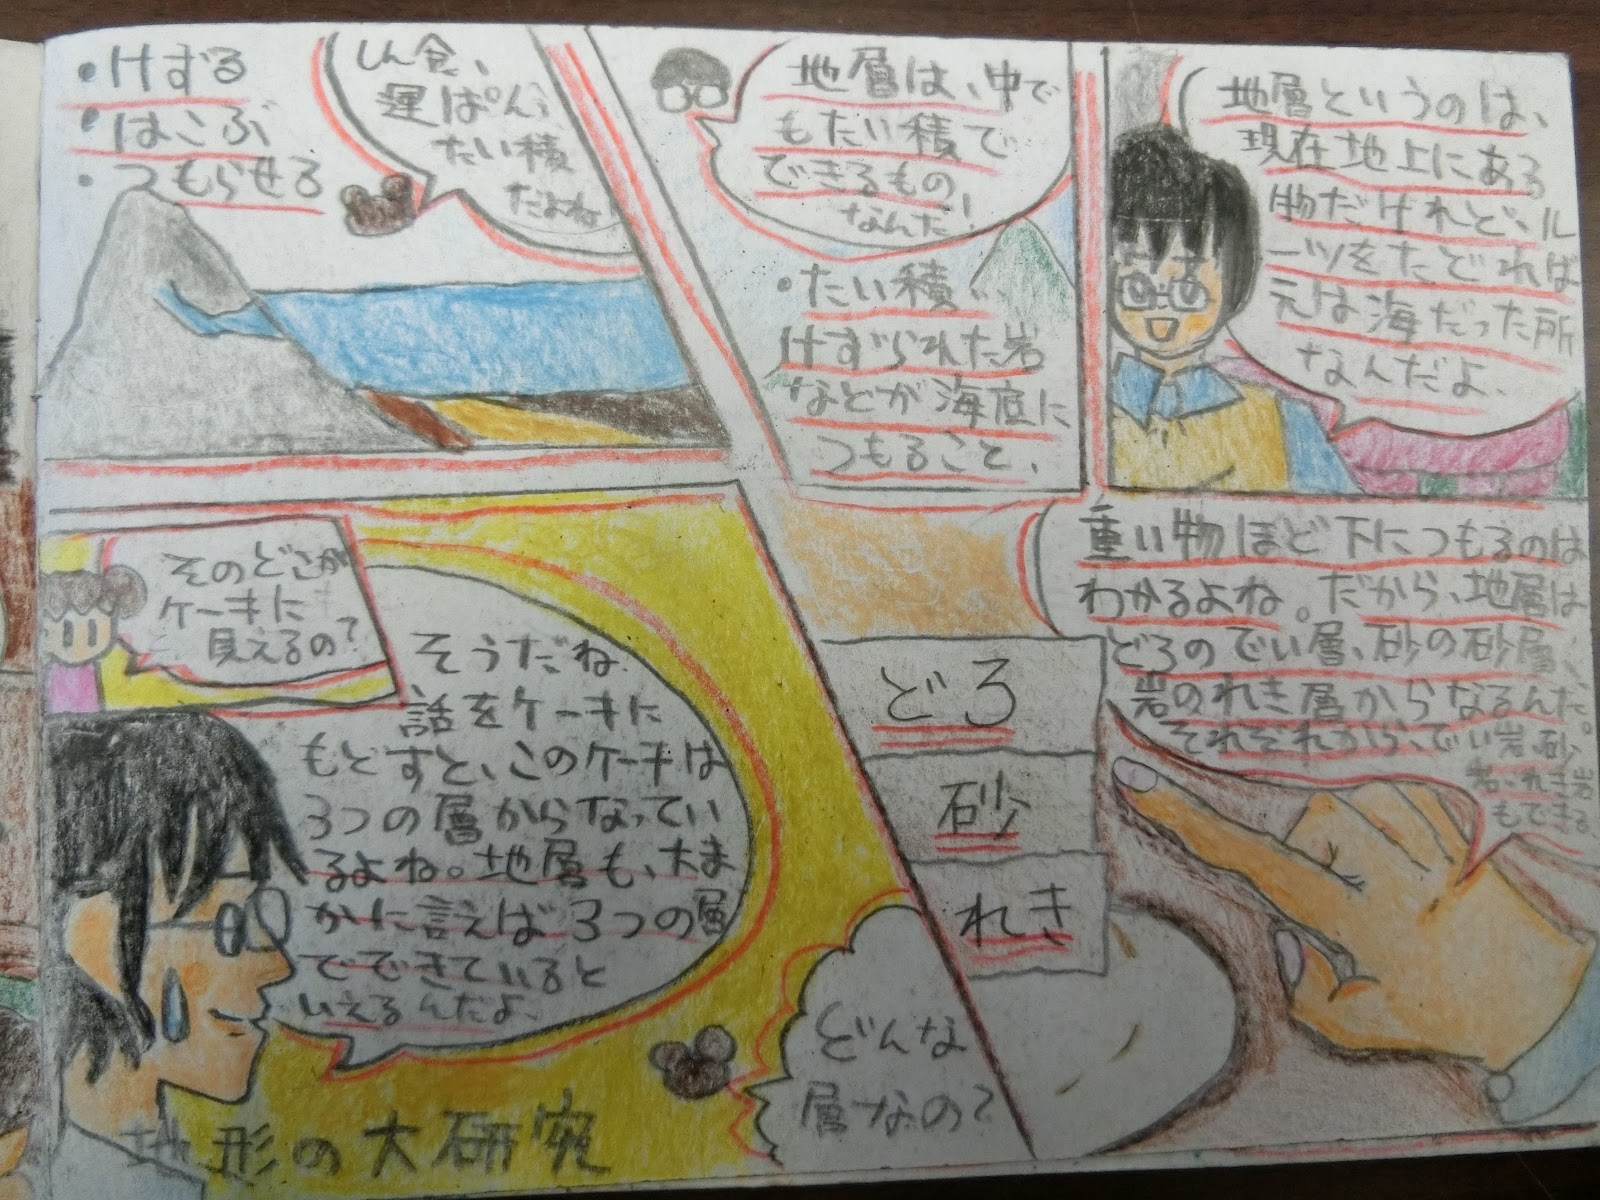 地層というのは、
現在地上にある
物だけれど、ル
ーツをたどれば
元は海だった所
なんだよ、
地層は、中で
もたい積で
できるもの
なんだ!
・たい積
けずられた岩
などが海底に
つもること、
しん食、
運ぱん、
たい積
だよね
・けずる
・はこぶ
・つもらせる
重い物ほど下につもるのは
わかるよね。だから、地層は
どろのでい層、砂の砂層、
岩のれき層からなるんだ。
それぞれから、でい岩、砂
岩、れき岩
もできる
どろ
砂
れき
そのどこが
ケーキに
見えるの?
そうだね
話をケーキに
もどすと、このケーキは
3つの層からなってい
るよね。地層も、大ま
かに言えば3つの層
でできていると
いえるんだよ、
どんな
層なの?
地形の大研究